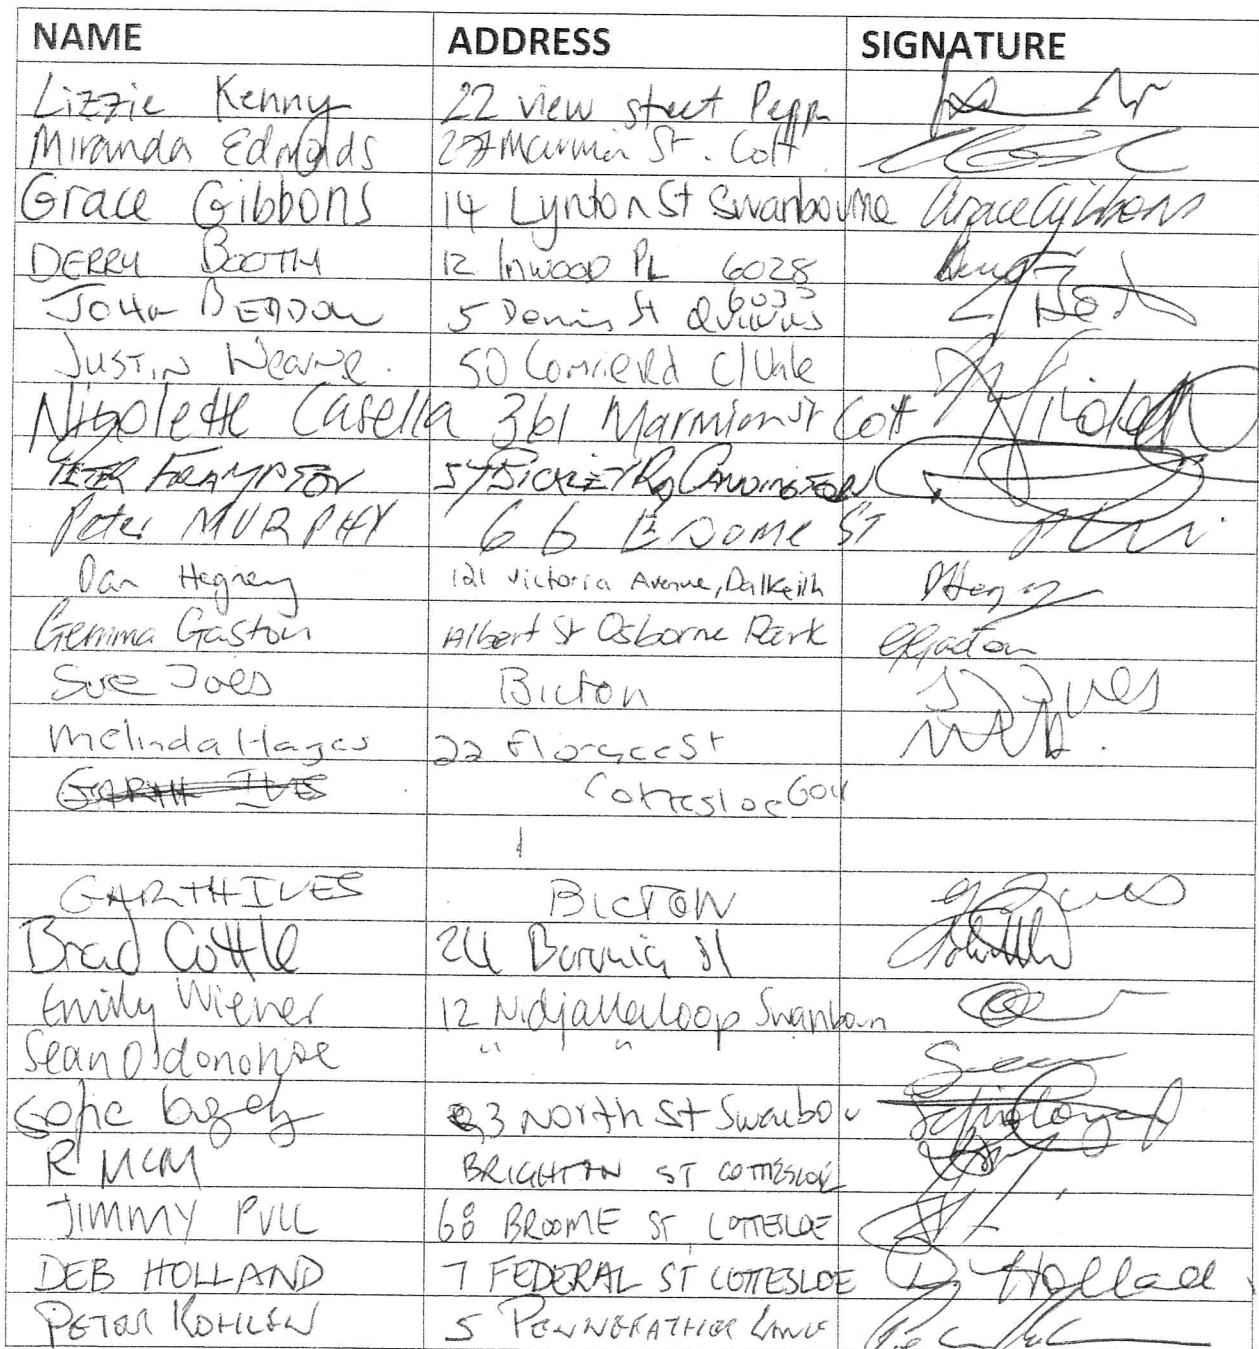 NAME ADDRESS SIGNATURE
Lizzie Kenny 22 view street Pepp
Miranda Edmonds 27 Marmion St. Cott
Grace Gibbons 14 Lynton St Swanbourne Grace Gibbons
DERRY BOOTH 12 INWOOD PL 6028
JOHN BEDDOW 5 Dennis St 6033
JUSTIN Hearne. 50 Comrie Rd C/Vale
Nicolette Casella 361 Marmion St Cott
PETER FRAMPTON 57 BICKLEY Rd CANNINGTON
Peter MURPHY 66 BROOME ST
Dan Hegney 121 Victoria Avenue, Dalkeith
Gemma Gaston Albert St Osborne Park GGaston
Sue Ives Bicton S Ives
Melinda Hayes 22 Florence St
GARTH IVES Cottesloe 6011
GARTH IVES BICTON G Ives
Brad Cottle 24 St
Emily Wiener 12 Nidjalla Loop Swanbourn
Sean O'donohoe " "
Sofie 93 North St Swanbou
R MCM BRIGHTON ST COTTESLOE
JIMMY PULL 68 BROOME ST, COTTESLOE
DEB HOLLAND 7 FEDERAL ST COTTESLOE D Holland
PETER KOHLEN 5 PENNEFATHER LANE